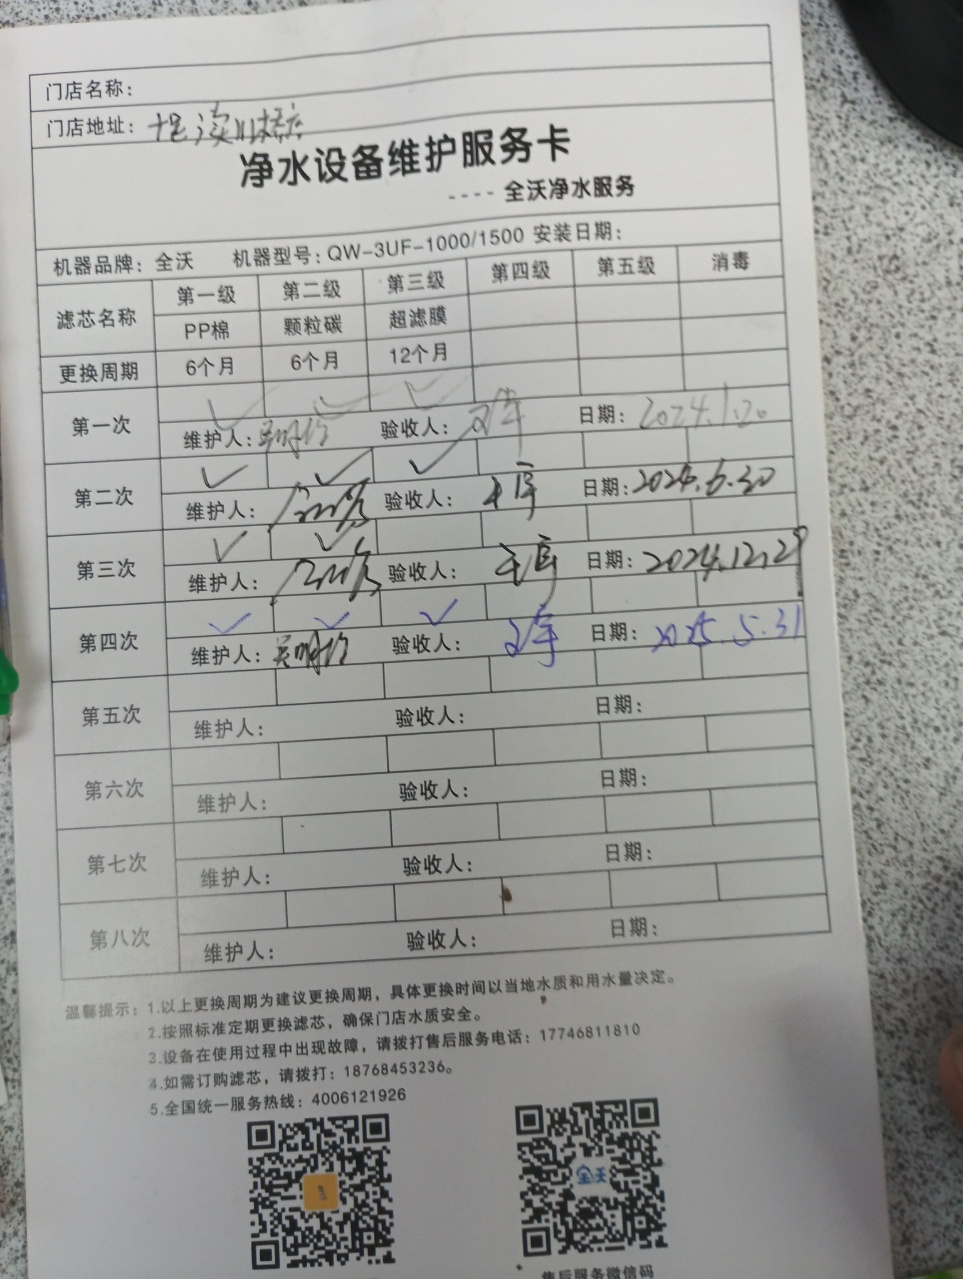 门店名称：
门店地址：
净水设备维护服务卡
---- 全沃净水服务
机器品牌：全沃 机器型号：QW-3UF-1000/1500 安装日期：
滤芯名称 第一级 第二级 第三级 第四级 第五级 消毒
PP棉 颗粒碳 超滤膜
更换周期 6个月 6个月 12个月
第一次 ✓ ✓ ✓
维护人： 验收人： 日期：2024.1.20
第二次 ✓ ✓ ✓
维护人： 验收人： 日期：2024.6.30
第三次 ✓ ✓
维护人： 验收人： 日期：2024.12.29
第四次 ✓ ✓ ✓
维护人： 验收人： 日期：2025.5.31
第五次
维护人： 验收人： 日期：
第六次
维护人： 验收人： 日期：
第七次
维护人： 验收人： 日期：
第八次
维护人： 验收人： 日期：
温馨提示：1.以上更换周期为建议更换周期，具体更换时间以当地水质和用水量决定。
2.按照标准定期更换滤芯，确保门店水质安全。
3.设备在使用过程中出现故障，请拨打售后服务电话：17746811810
4.如需订购滤芯，请拨打：18768453236。
5.全国统一服务热线：4006121926
全沃
售后服务微信码